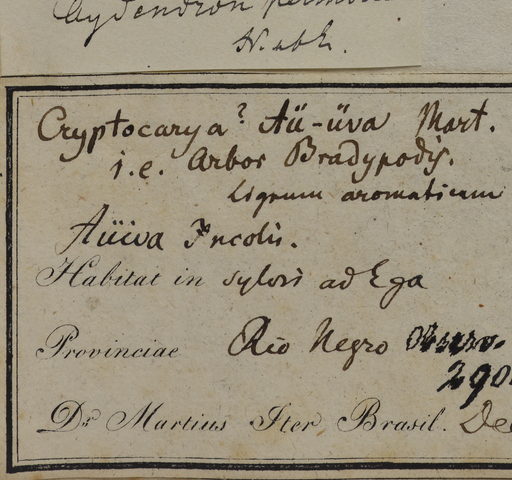 Aydendron
N. ab E.
Cryptocarya? Aü-üva Mart.
i.e. Arbor Bradypodis.
Lignum aromaticum
Aüüva Incolis.
Habitat in sylvis ad Ega
Provinciae Rio Negro
290
Dr. Martius Iter Brasil. Dec